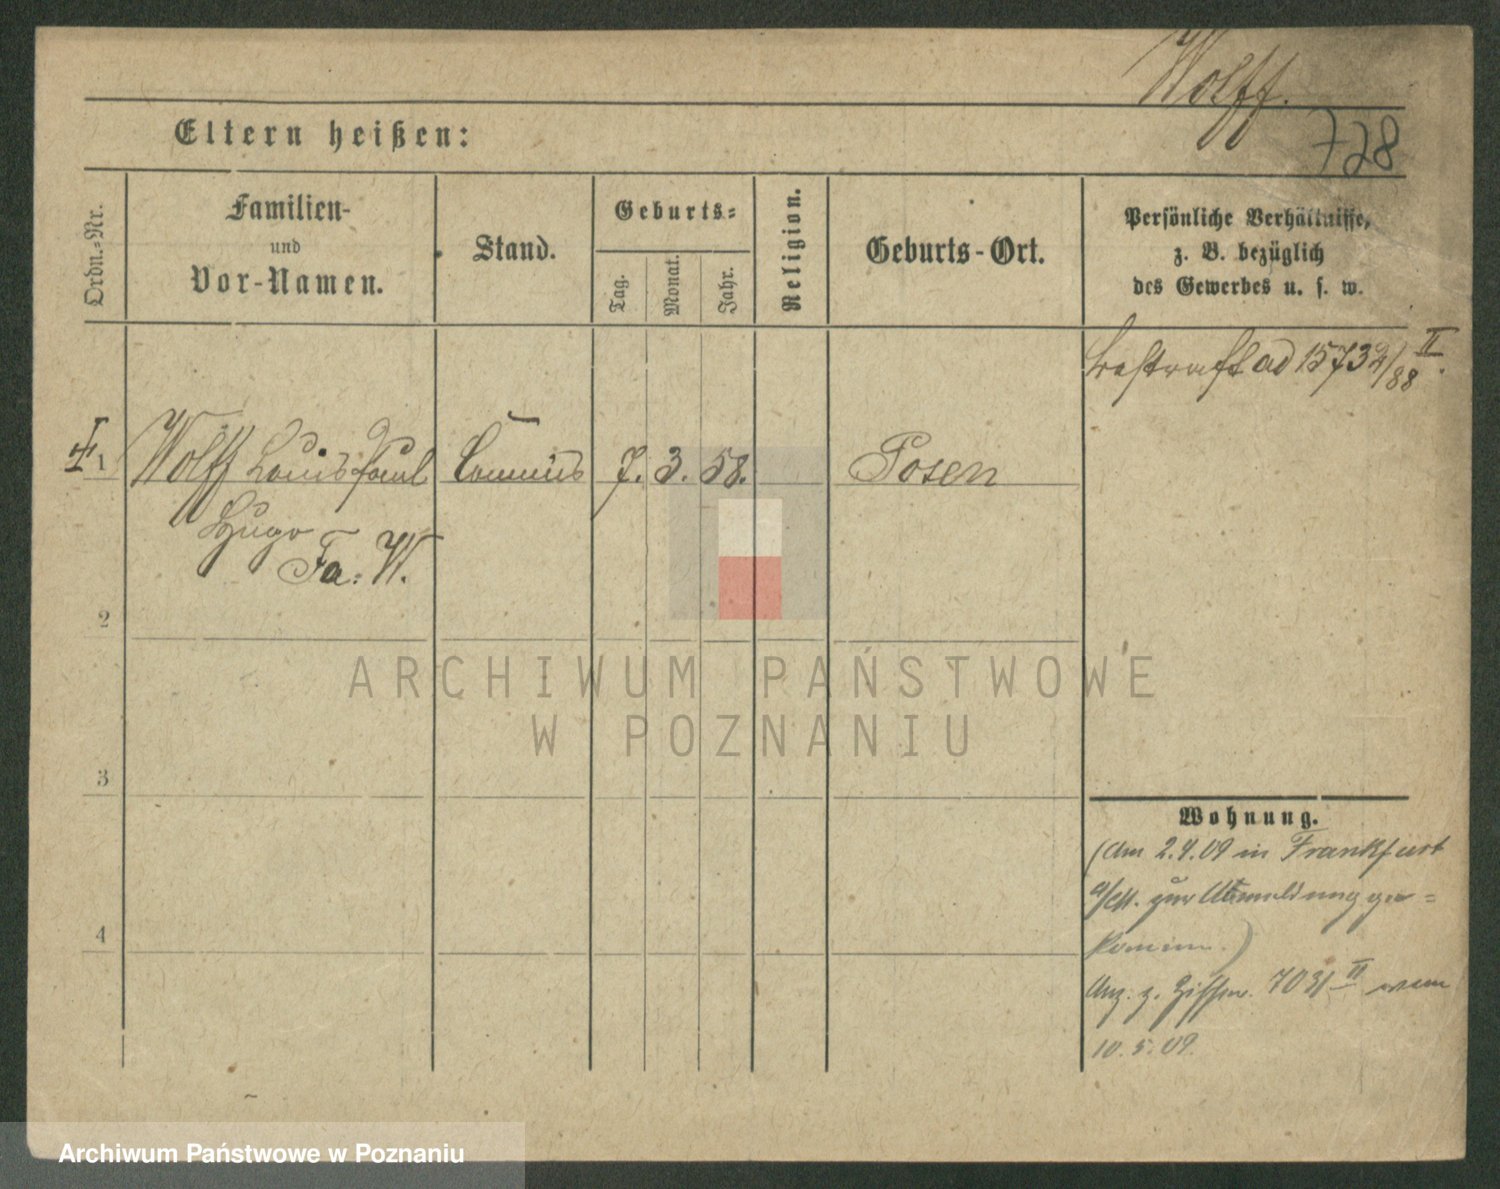 Wolff.
Eltern heißen:
728
Ordn.-Nr.
Familien-
und
Vor-Namen.
Stand.
Geburts-
Tag.
Monat.
Jahr.
Religion.
Geburts-Ort.
Persönliche Verhältnisse,
z. B. bezüglich
des Gewerbes u. s. w.
bestraft ad 15732/88 II.
1 Wolff Louis Paul Commis 7. 3. 58. Posen
Hugo
Fa: W.
2
3
4
Wohnung.
(Am 2.4.09 in Frankfurt
a/M. zur Abmeldung ge-
kommen.)
7031 II vom
10.5.09.
ARCHIWUM PAŃSTWOWE
W POZNANIU
Archiwum Państwowe w Poznaniu